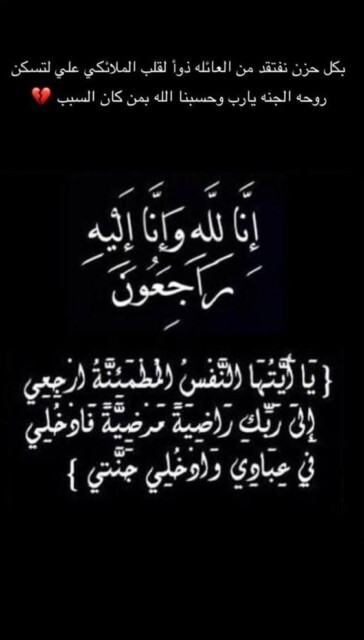 بكل حزن نفتقد من العائله ذوأ لقلب الملائكي علي لتسكن
روحه الجنه يارب وحسبنا الله بمن كان السبب 💔
إِنَّا لِلَّهِ وَإِنَّا إِلَيْهِ
رَاجِعُونَ
{ يَا أَيَّتُهَا النَّفْسُ الْمُطْمَئِنَّةُ ارْجِعِي
إِلَى رَبِّكِ رَاضِيَةً مَرْضِيَّةً فَادْخُلِي
فِي عِبَادِي وَادْخُلِي جَنَّتِي }